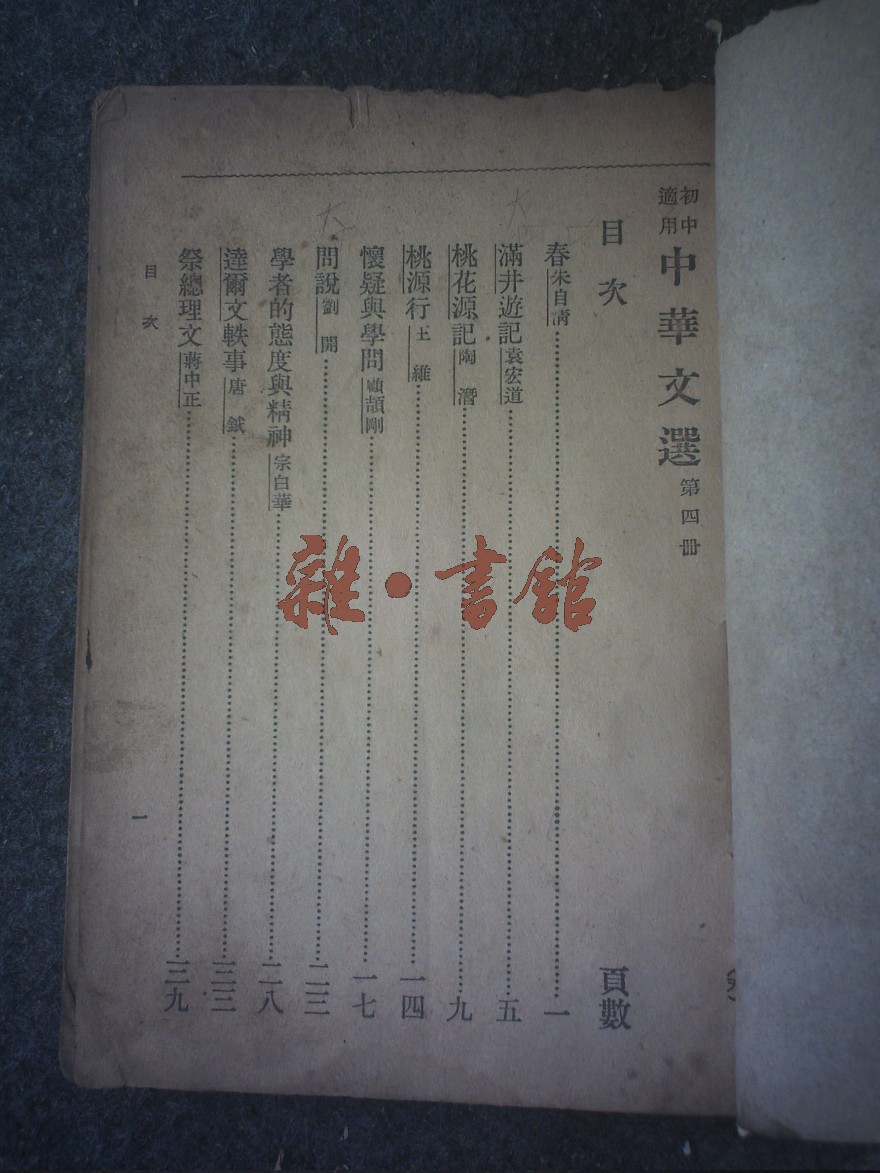 初中適用中華文選第四冊
目次 頁數
春 朱自清……一
滿井遊記 袁宏道……五
桃花源記 陶潛……九
桃源行 王維……一四
懷疑與學問 顧頡剛……一七
問說 劉開……二三
學者的態度與精神 宗白華……二八
達爾文軼事 唐鉞……三三
祭總理文 蔣中正……三九
目次 一
雜·書館